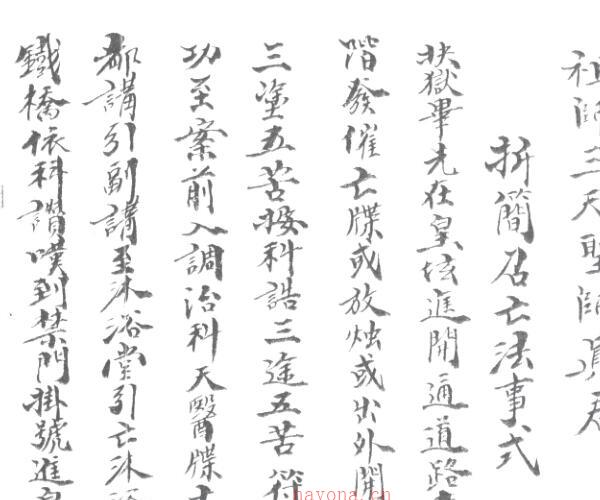 祖師三天聖師真君
折簡召亡法事式
抉獄畢先在皇壇進開通道路
階發催亡牒或放燭或出外開
三塗五苦按科誥三途五苦符
功至案前入調治科天醫牒
都講引副講至沐浴堂引亡沐浴
鐵橋依科讚嘆到禁門掛號進
nayona.cn